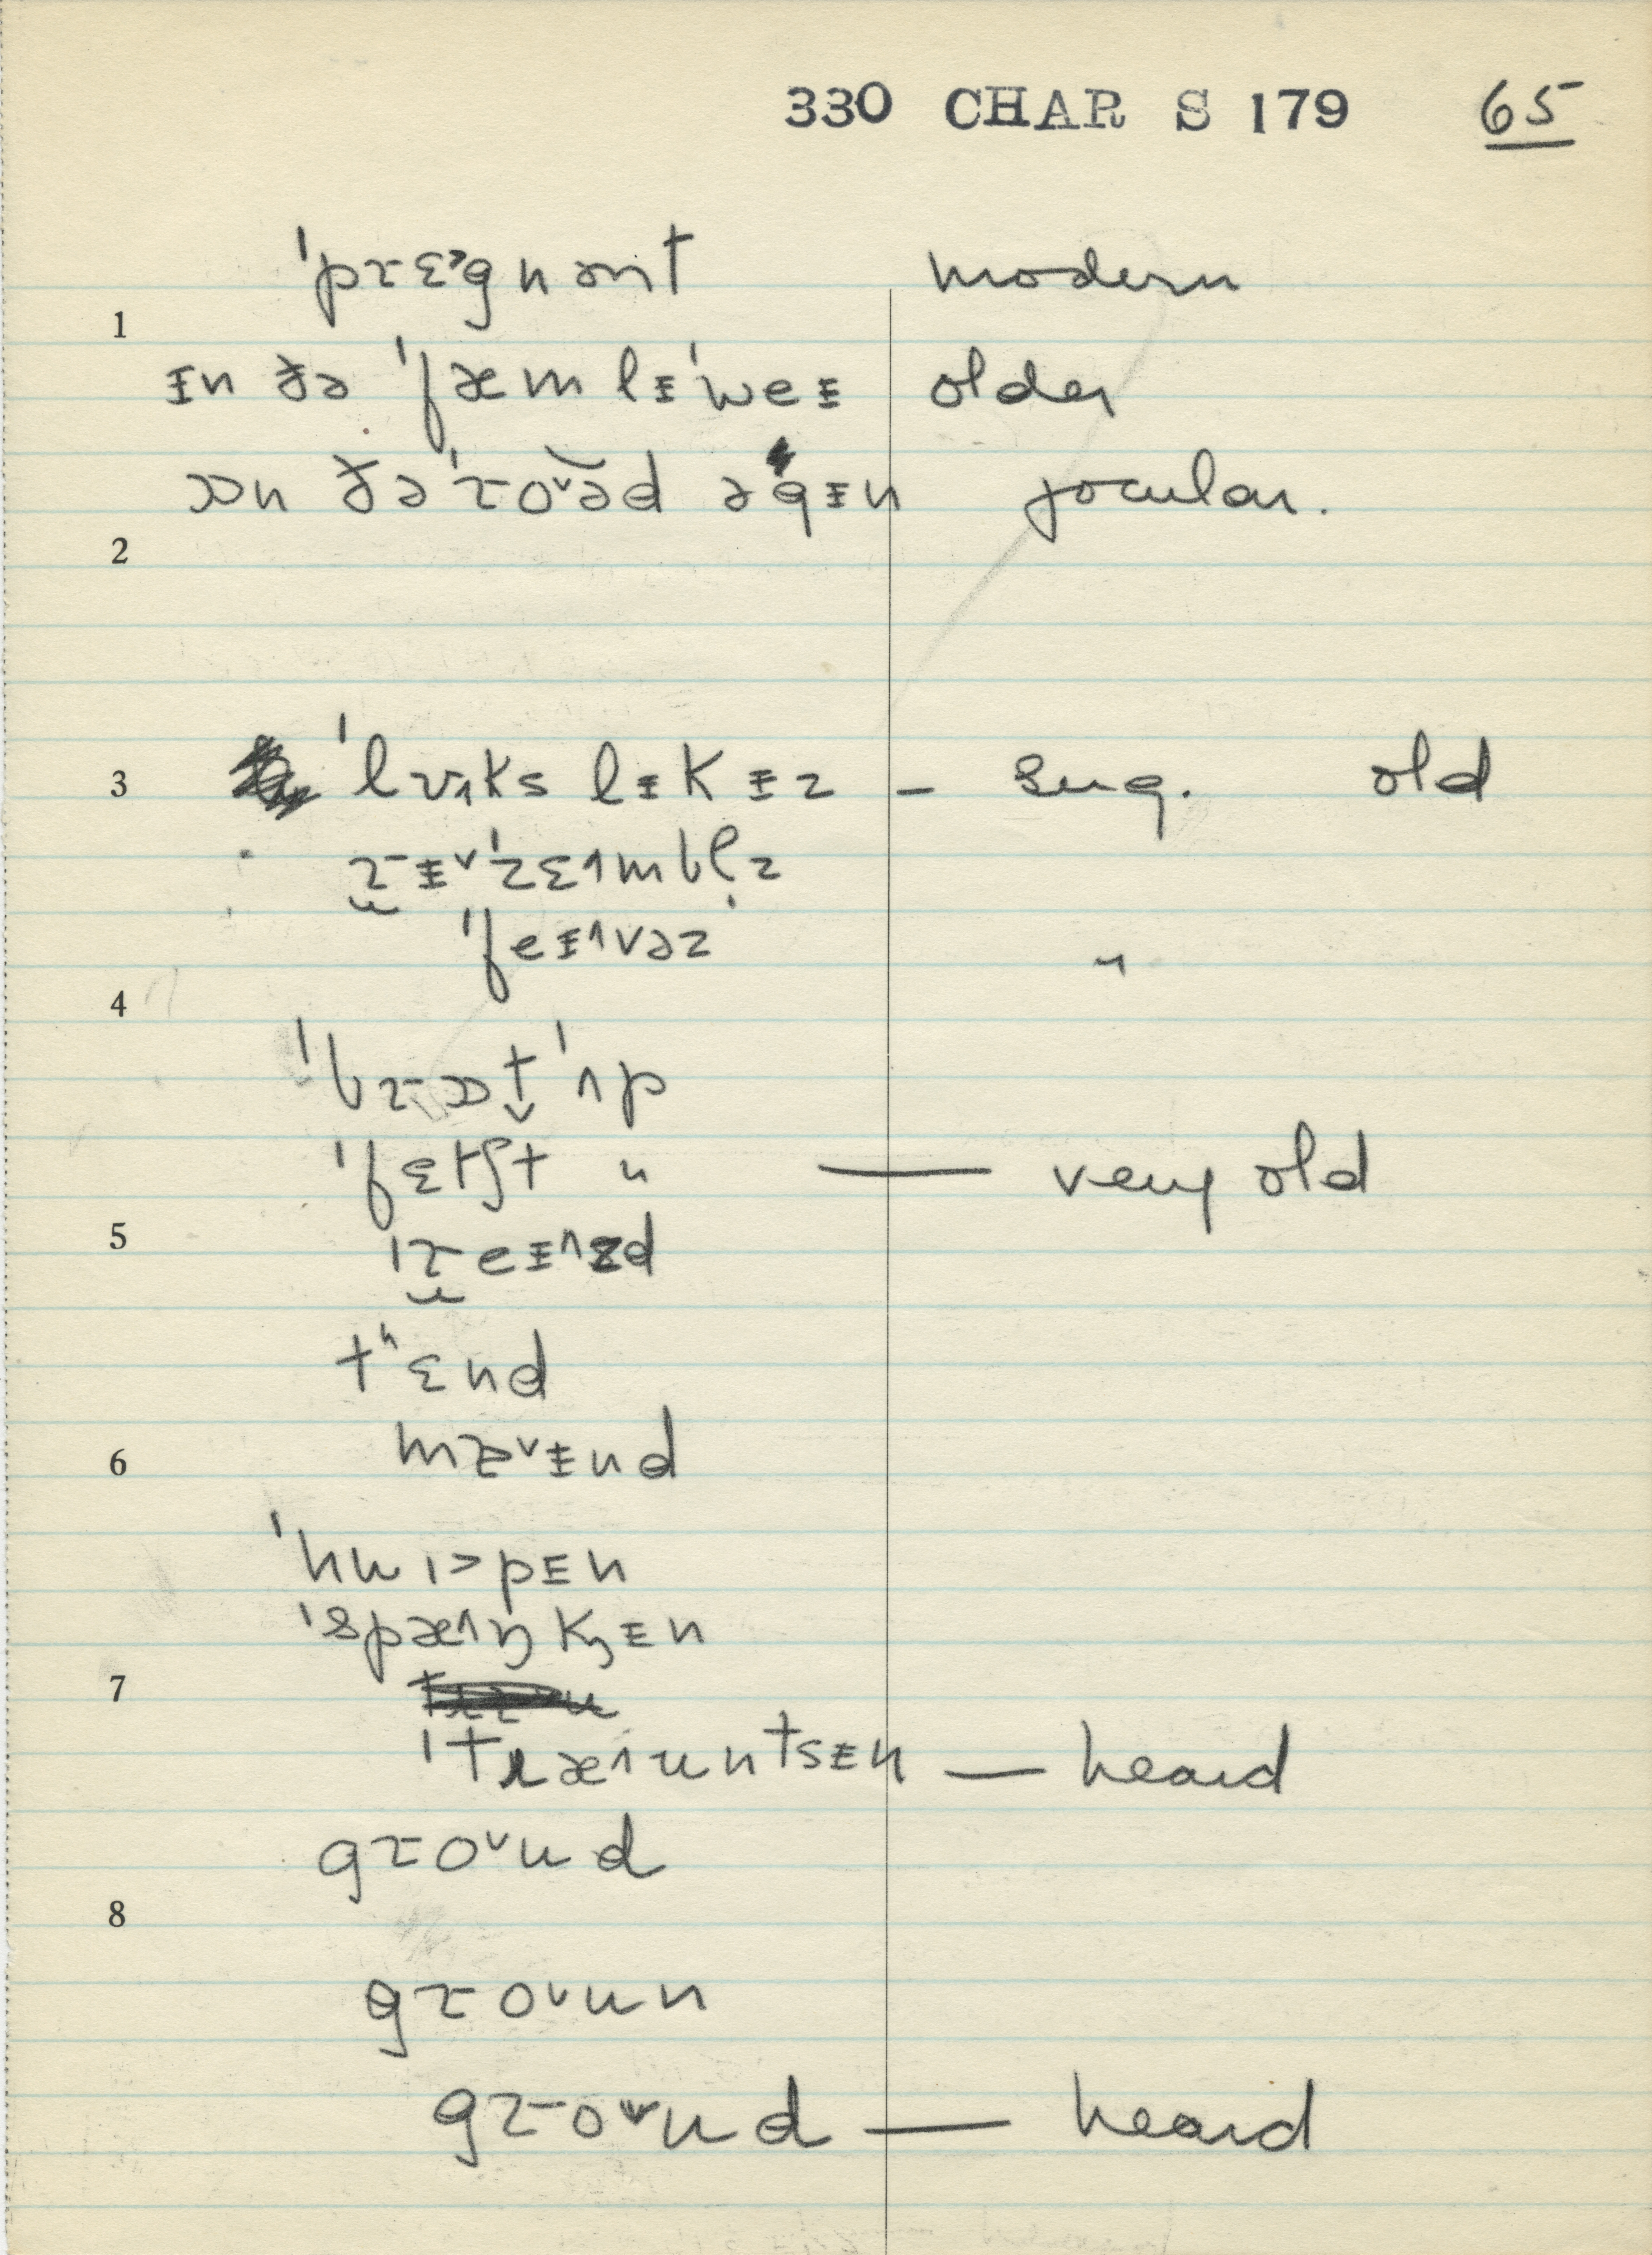 330 CHAR S 179 65
ˈprɛ˃gnənt modern
1
ɪn ðə ˈfæmlɪˈweɪ older
ɒn ðə ˈroˇəd əgɪn jocular.
2
3 ˈlʊ˄ks lɪk ɪz – sug. old
rɪˇˈzɛ˄mbl̩z
ˈfeɪ˄vəz "
4
ˈbrɒt ˈʌp
ˈfɛtʃt " — very old
5 ˈreɪ˄zd
tʰɛnd
6 mæˇɪnd
ˈhwɪ˃pɪn
ˈspæ˄ŋkɪn
7
ˈtɹæ˄untsɪn — heard
groˇud
8
groˇun
groˇud — heard